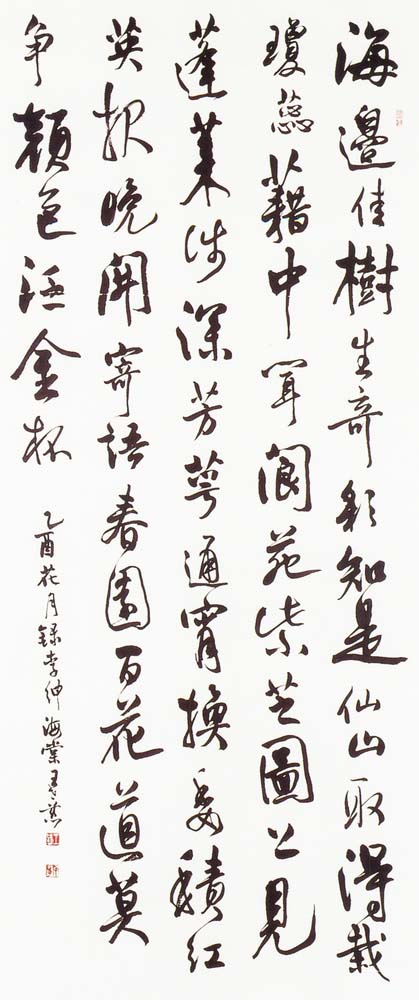 海邊佳樹生奇彩知是仙山取得栽
瓊蕊藉中聞閬苑紫芝圖上見
蓬莱淺深芳萼通宵換委積紅
英報曉開寄語春園百花道莫
争顏色泛金杯
乙酉花月録李紳海棠